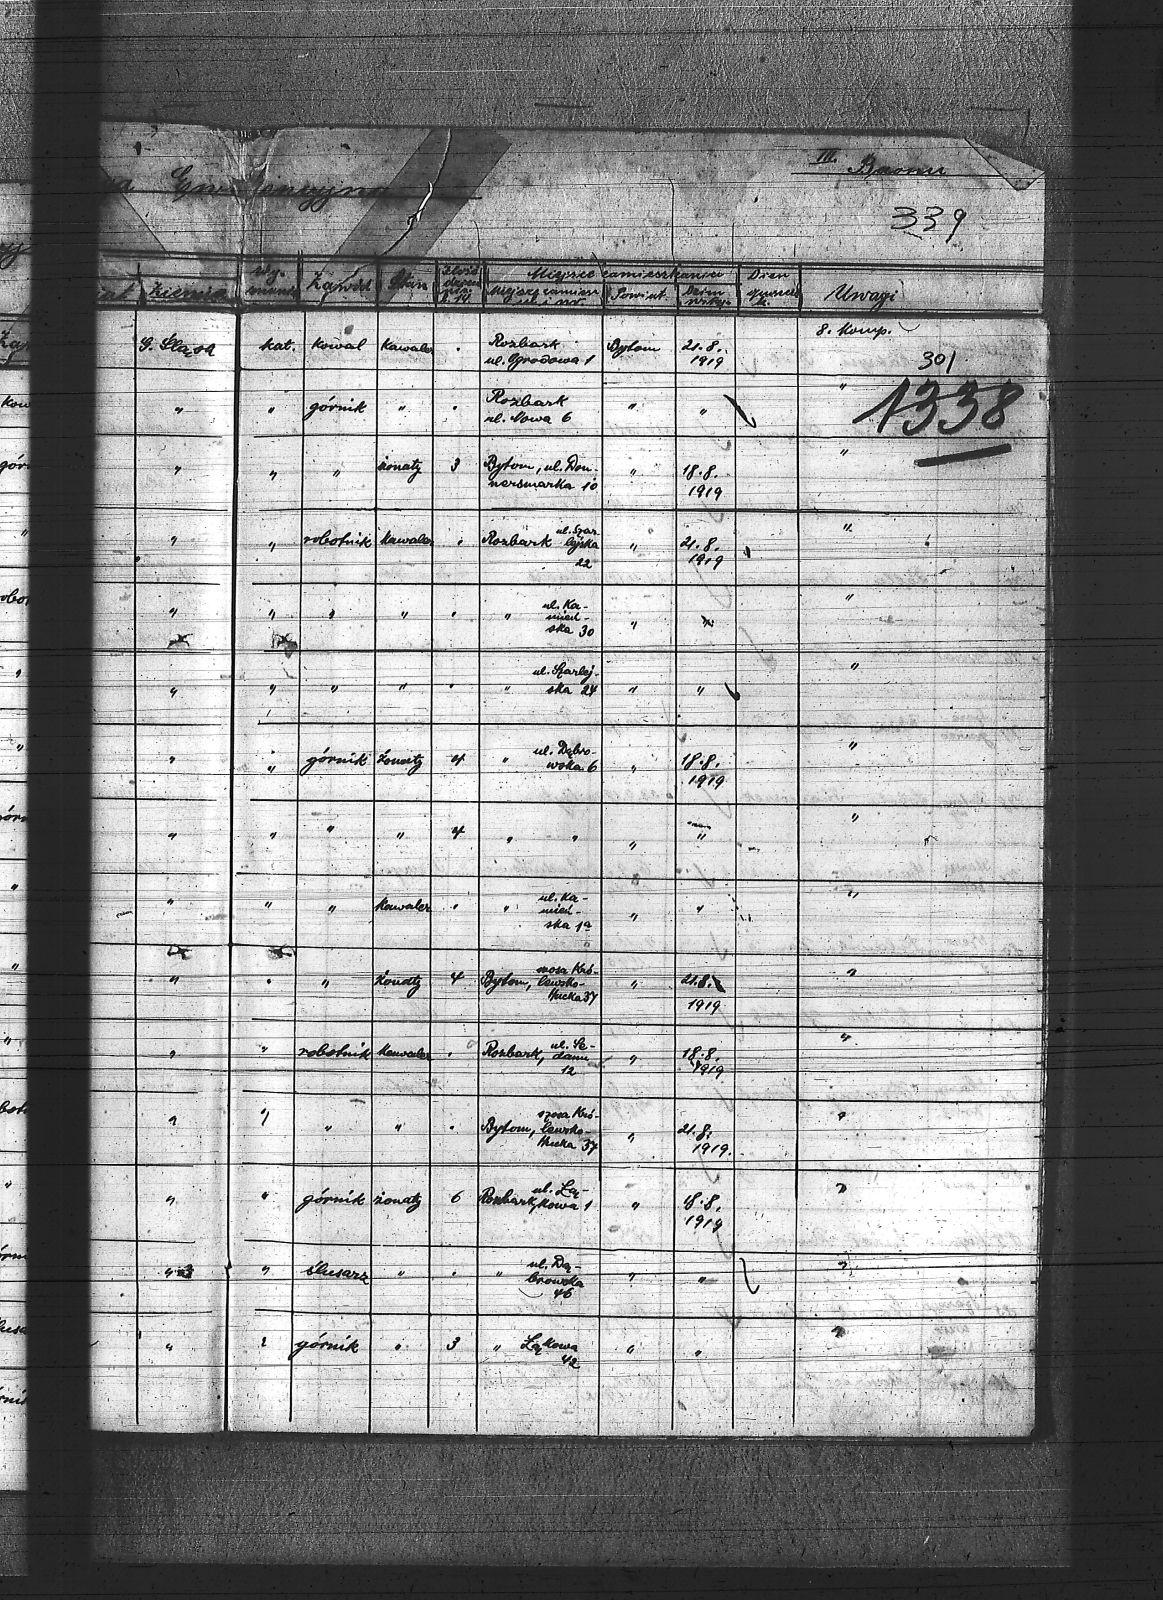 Ewidencyjna
III. Baonu
339
Ziemia
Wy-
znanie
Zawód
Stan
Ilość
dzieci
Miejsce zamieszkania
Powiat
Dzień
Uwagi
8. Komp.
G. Śląsk kat. kowal kawaler Rozbark
ul. Grodowa 1 Bytom 21.8.
1919
301
1338
" " górnik " Rozbark
ul. Nowa 6 " " "
" " " żonaty 3 Bytom, ul. Don-
nersmarka 10 " 18.8.
1919 "
" " robotnik kawaler Rozbark ul. Szar-
lejska
22 " 21.8.
1919 "
" " " " " ul. Ka-
mień-
ska 30 " " "
" " " " " ul. Szarlej-
ska 24 " " "
" " górnik żonaty 4 " ul. Dąbro-
wska 6 " 18.8.
1919 "
" " " " 4 " " " " "
" " " kawaler " ul. Ka-
mień-
ska 1a " " "
" " " żonaty 4 Bytom, szosa Kró-
lewsko-
Hucka 37 " 21.8.
1919 "
" " robotnik kawaler Rozbark, ul. Se-
danu
12 " 18.8.
1919 "
" " " " Bytom, szosa Kró-
lewsko-
Hucka 37 " 21.8.
1919. "
" " górnik żonaty 6 Rozbark, ul. Łą-
kowa 1 " 18.8.
1919 "
" " ślusarz " " ul. Dą-
browska
46 " " "
" " górnik " 3 " Łąkowa
42 " " "